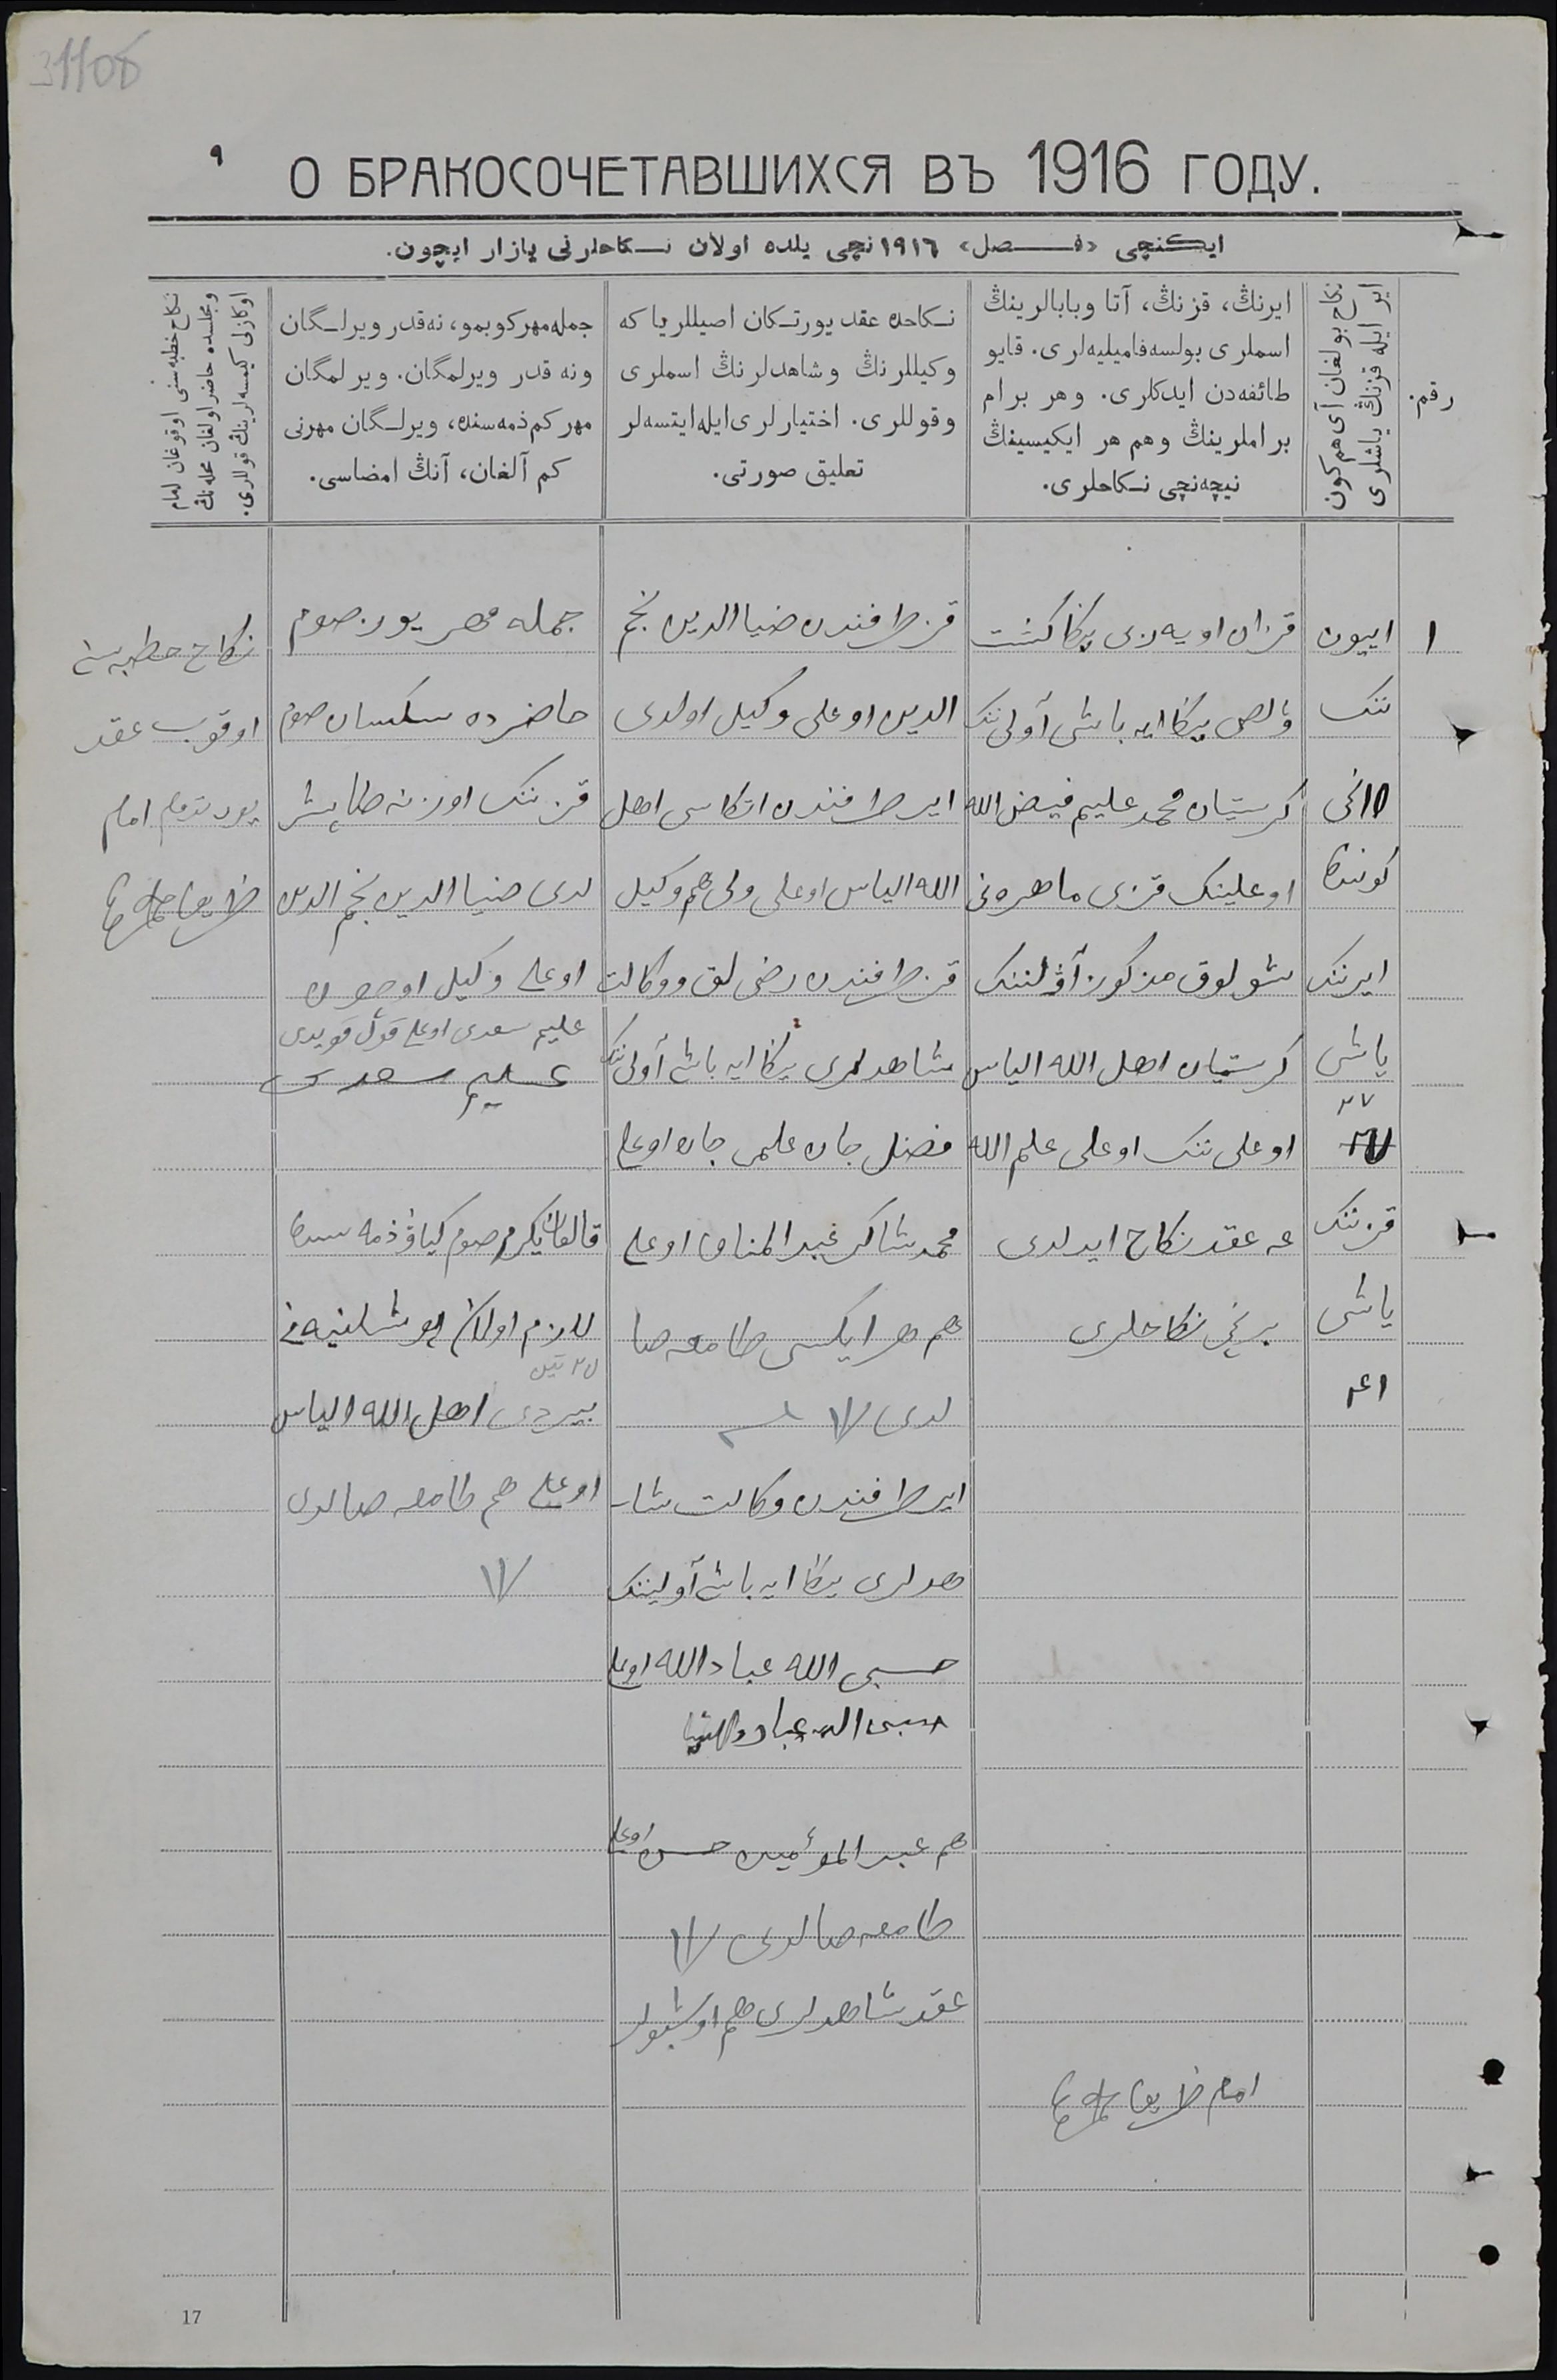 31108
٩
О БРАКОСОЧЕТАВШИХСЯ ВЪ 1916 ГОДУ.
ایكنچی «فصل» ١٩١٦ نچی یلده اولان نكاحلرنی یازار ایچون.
رقم.
نكاح بولغان آی هم كون
ایر ایله قزنڭ یاشلری
ایرنڭ، قزنڭ، آتا وبابالرینڭ
اسملری بولسه فامیلیه‌لری. قایو
طائفه‌دن ایدكلری. وهر برام
براملرینڭ وهم هر ایكیسینڭ
نیچه‌نچی نكاحلری.
نكاحده عقد یورتكان اصیللریا كه
وكیللرنڭ وشاهدلرنڭ اسملری
وقوللری. اختیارلری ایله ایتسه‌لر
تعلیق صورتی.
جمله مهر كوبمو، نه‌قدر ویرلگان
ونه قدر ویرلمگان. ویرلمگان
مهر كم ذمه‌سنده، ویرلگان مهرنی
كم آلغان، آنڭ امضاسی.
نكاح خطبه‌سنی اوقوغان امام
ومجلسده حاضر اولغان محله‌نڭ
اوكازلی كیمسه‌لرینڭ قوللری.
١
اییون
ننك
١٥ نچی
كونده
ایرننك
یاشی
٢٧
قزننك
یاشی
قزان اویه‌زی
باشی آولی ننك
كرستیان محمد علیم فیض الله
اوغلینك قزی ماهره‌نی
شولوق مذكور آولننك
كرستیان اهل الله الیاس
اوغلی ننك اوغلی علم الله
غه عقد نكاح ایدلدی
برنچی نكاحلری
قز طرفندن ضیا الدین نجم
الدین اوغلی وكیل اولدی
ایر طرفندن اتكاسی اهل
الله الیاس اوغلی ولی هم وكیل
قز طرفندن رضی لق و وكالت
شاهدلری باشی آولی ننك
فضل جان علمی جان اوغلی
محمد شاكر عبد المناف اوغلی
هم هر ایكسی طامغه صا
لدی
ایر طرفندن وكالت شا
هدلری باشی آولیننك
حسبی الله عباد الله اوغلی
حسبی الله
هم عبد المؤمین حسن اوغلی
طامغه صالدی
عقد شاهدلری هم اوشبولر
جمله مهر یوز صوم
حاضرده سكسان صوم
قزننك اوزنه طابشر
لدی ضیا الدین نجم الدین
اوغلی وكیل اوچون
علیم سعدی اوغلی قول قویدی
علیم سعدی
قالغان یكرمی صوم كیاو ذمه‌سنده
لازم اولان پوشلینه‌نی
٢٥ تین
بیردی اهل الله الیاس
اوغلی هم طامغه صالدی
نكاح خطبه‌سنی
اوقوب عقد
یورتدم امام
امام
17